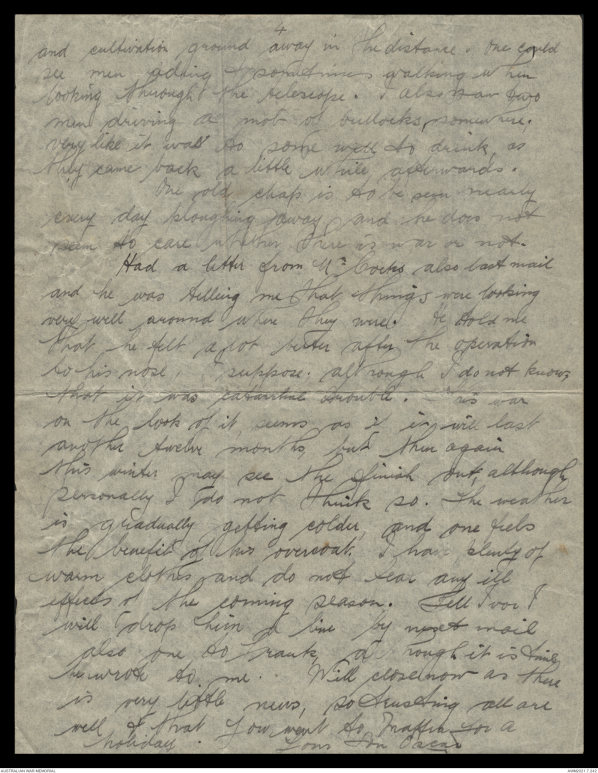 4
and cultivation ground away in the distance. One could
see men riding & sometimes walking when
looking through the telescope. I also saw two
men driving a mob of bullocks, somewhere.
very like it was to some well to drink, as
they came back a little while afterwards.
One old chap is to be seen nearly
every day ploughing away and he does not
seem to care whether there is war or not.
Had a letter from Mr Cocks also last mail
and he was telling me that things were looking
very well around where they were. He told me
that he felt a lot better after the operation
to his nose, I suppose. although I do not know,
that it was catarrhal trouble. This war
on the look of it seems as if it will last
another twelve months but then again
this winter may see the finish out, although
personally I do not think so. The weather
is gradually getting colder and one feels
the benefit of his overcoat. I have plenty of
warm clothes and do not fear any ill
effects of the coming season. Tell Ivor I
will drop him a line by next mail
also one to Frank, although it is time
he wrote to me. Will close now as there
is very little news, so trusting all are
well & that you went to Maffra for a
holiday. Yours Oscar
AUSTRALIAN WAR MEMORIAL
AWM2021.7.242